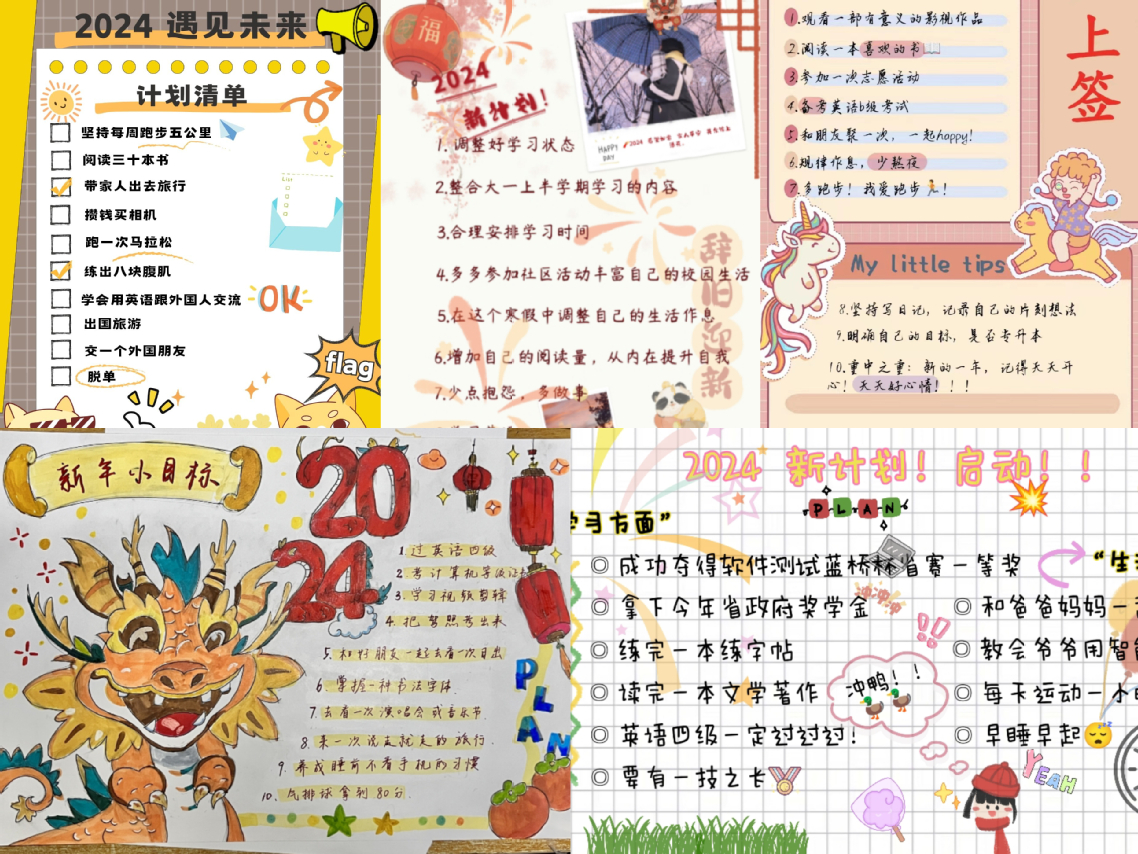 2024 遇见未来
计划清单
坚持每周跑步五公里
阅读三十本书
带家人出去旅行
攒钱买相机
跑一次马拉松
练出八块腹肌
学会用英语跟外国人交流
OK
出国旅游
交一个外国朋友
脱单
flag
List
福
2024
新计划!
HAPPY
DAY
1.调整好学习状态
2.整合大一上半学期学习的内容
3.合理安排学习时间
4.多多参加社区活动丰富自己的校园生活
5.在这个寒假中调整自己的生活作息
6.增加自己的阅读量，从内在提升自我
7.少点抱怨，多做事
辞旧迎新
1.观看一部有意义的影视作品
2.阅读一本喜欢的书
3.参加一次志愿活动
4.备考英语b级考试
5.和朋友聚一次，一起happy!
6.规律作息，少熬夜
7.多跑步！我爱跑步！
上签
My little tips
8.坚持写日记，记录自己的片刻想法
9.明确自己的目标，是否专升本
10.重中之重：新的一年，记得天天开
心！天天好心情！！！
新年小目标
2024
1.过英语四级
2.考计算机等级证
3.学习视频剪辑
4.把驾照考出来
5.和好朋友一起去看一次日出
6.掌握一种书法字体.
7.去看一次演唱会或音乐节.
8.来一次说走就走的旅行.
9.养成睡前不看手机的习惯
10.气排球拿到80分.
PLAN
2024 新计划！启动！！
PLAN
学习方面”
成功夺得软件测试蓝桥杯省赛一等奖
拿下今年省政府奖学金
冲冲冲
练完一本练字帖
读完一本文学著作
冲鸭！！
英语四级一定过过过！
要有一技之长
“生
和爸爸妈妈一
教会爷爷用智
每天运动一小
早睡早起
YEAH